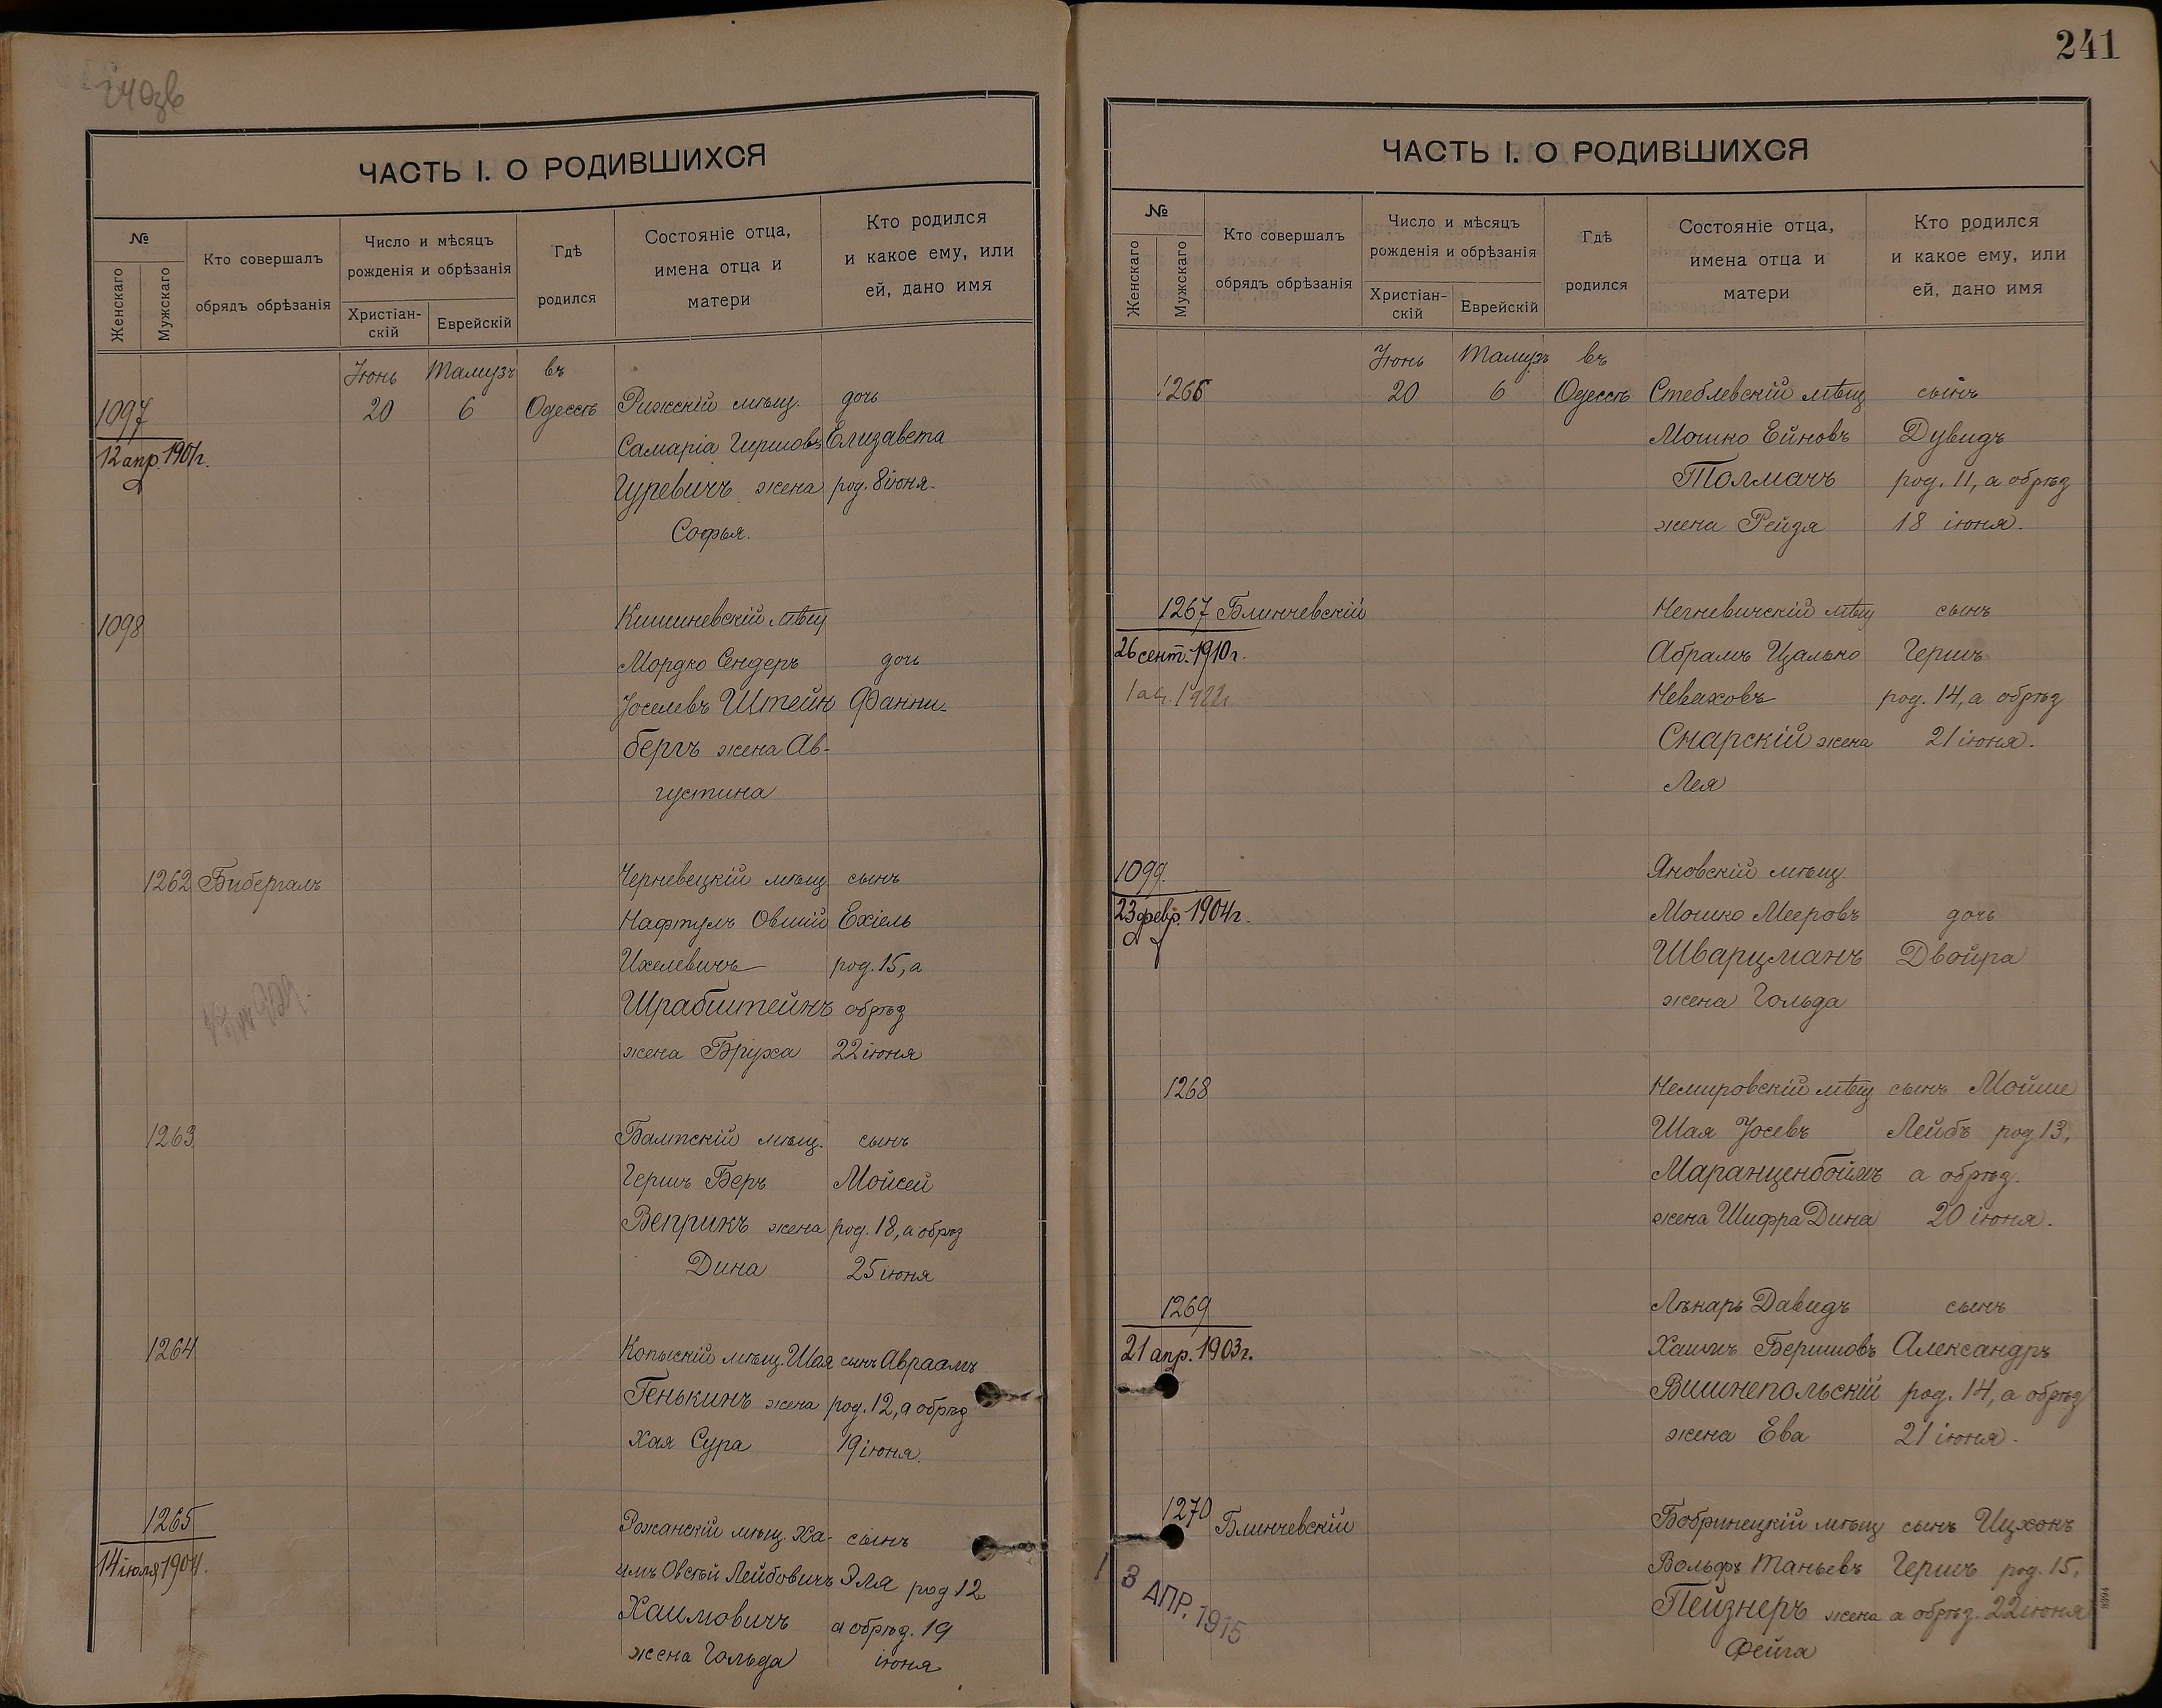 240зв
ЧАСТЬ I. О РОДИВШИХСЯ
№
Женскаго
Мужскаго
Кто совершалъ
обрядъ обрѣзанія
Число и мѣсяцъ
рожденія и обрѣзанія
Христіан-
скій
Еврейскій
Гдѣ
родился
Состояніе отца,
имена отца и
матери
Кто родился
и какое ему, или
ей, дано имя
Іюнь Тамузъ въ
1097 20 6 Одессѣ Рижскій мѣщ. дочь
12 апр. 1901г. Самарія Гиршовъ Елизавета
Гуревичъ жена род. 8 іюня.
Софья.
1098 Кишиневскій мѣщ
Мордко Сендеръ дочь
Іоселевъ Штейн Фанни.
бергъ жена Ав-
густина
1262 Бибергалъ Черневецкій мѣщ сынъ
Нафтулъ Овший Ехіель
Ихелевичъ род. 15, а
Шрабштейнъ обрѣз
жена Бруха 22 іюня
1263 Балтскій мѣщ. сынъ
Гершъ Беръ Мойсей
Веприкъ жена род. 18, а обрѣз
Дина 25 іюня
1264 Копыскій мѣщ. Шая сынъ Авраамъ
Генькинъ жена род. 12, а обрѣз
Хая Сура 19 іюня.
1265 Рожанскій мѣщ. Ха- сынъ
14 іюля 1904. имъ Овсѣй Лейбовичъ Эля род 12
Хаимовичъ а обрѣз. 19
жена Гольда іюня
241
ЧАСТЬ I. О РОДИВШИХСЯ
№
Женскаго
Мужскаго
Кто совершалъ
обрядъ обрѣзанія
Число и мѣсяцъ
рожденія и обрѣзанія
Христіан-
скій
Еврейскій
Гдѣ
родился
Состояніе отца,
имена отца и
матери
Кто родился
и какое ему, или
ей, дано имя
Іюнь Тамузъ въ
1266 20 6 Одессѣ Стеблевскій мѣщ сынъ
Мошко Ейновъ Дувидъ
Толмачъ род. 11, а обрѣз
жена Рейзя 18 іюня.
1267 Блинчевскій Негневичскій мѣщ сынъ
26 сент. 1910г. Абрамъ Цалько Гершъ
1922г. Неваховъ род. 14, а обрѣз
Снарскій жена 21 іюня.
Лея
1099 Яновскій мѣщ.
23 февр. 1904г. Мошко Мееровъ дочь
Шварцманъ Двойра
жена Гольда
1268 Немировскій мѣщ сынъ Мойше
Шая Іосевъ Лейбъ род 13,
Маранценбоймъ а обрѣз.
жена Шифра Дина 20 іюня.
1269 Лѣкарь Давидъ сынъ
21 апр. 1903г. Хаимъ Беришовъ Александръ
Вишнепольскій род. 14, а обрѣз
жена Ева 21 іюня.
1270 Блинчевскій Бобринецкій мѣщ сынъ Ицхокъ
Вольфъ Таньевъ Гершъ род. 15,
3 АПР. 1915 Пейзнеръ жена а обрѣз. 22 іюня
Фейга